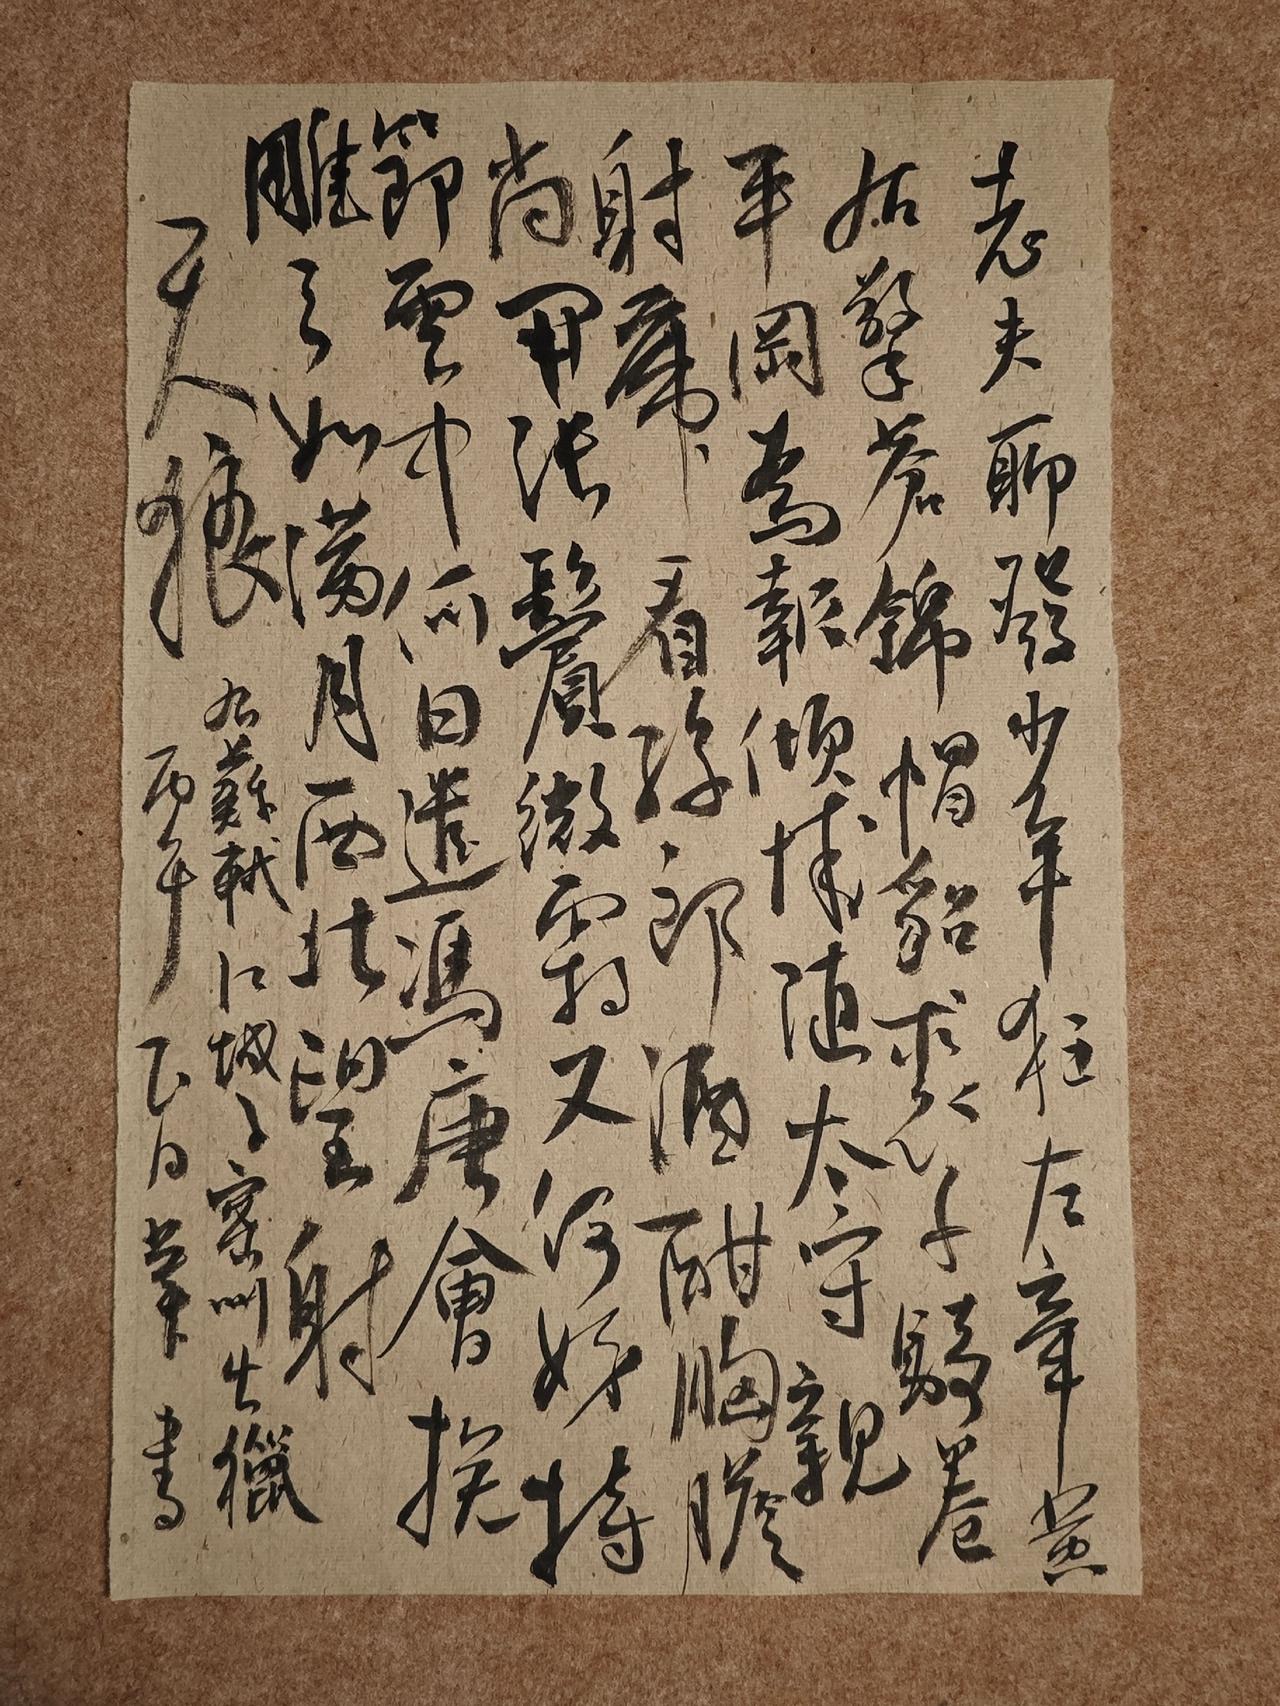 老夫聊發少年狂左牽黃
右擎蒼錦帽貂裘千騎卷
平岡為報傾城隨太守親
射虎看孫郎酒酣胸膽
尚開張鬢微霜又何妨持
節雲中何日遣馮唐會挽
雕弓如滿月西北望射
天狼
右蘇軾江城子密州出獵
丙午 日 書